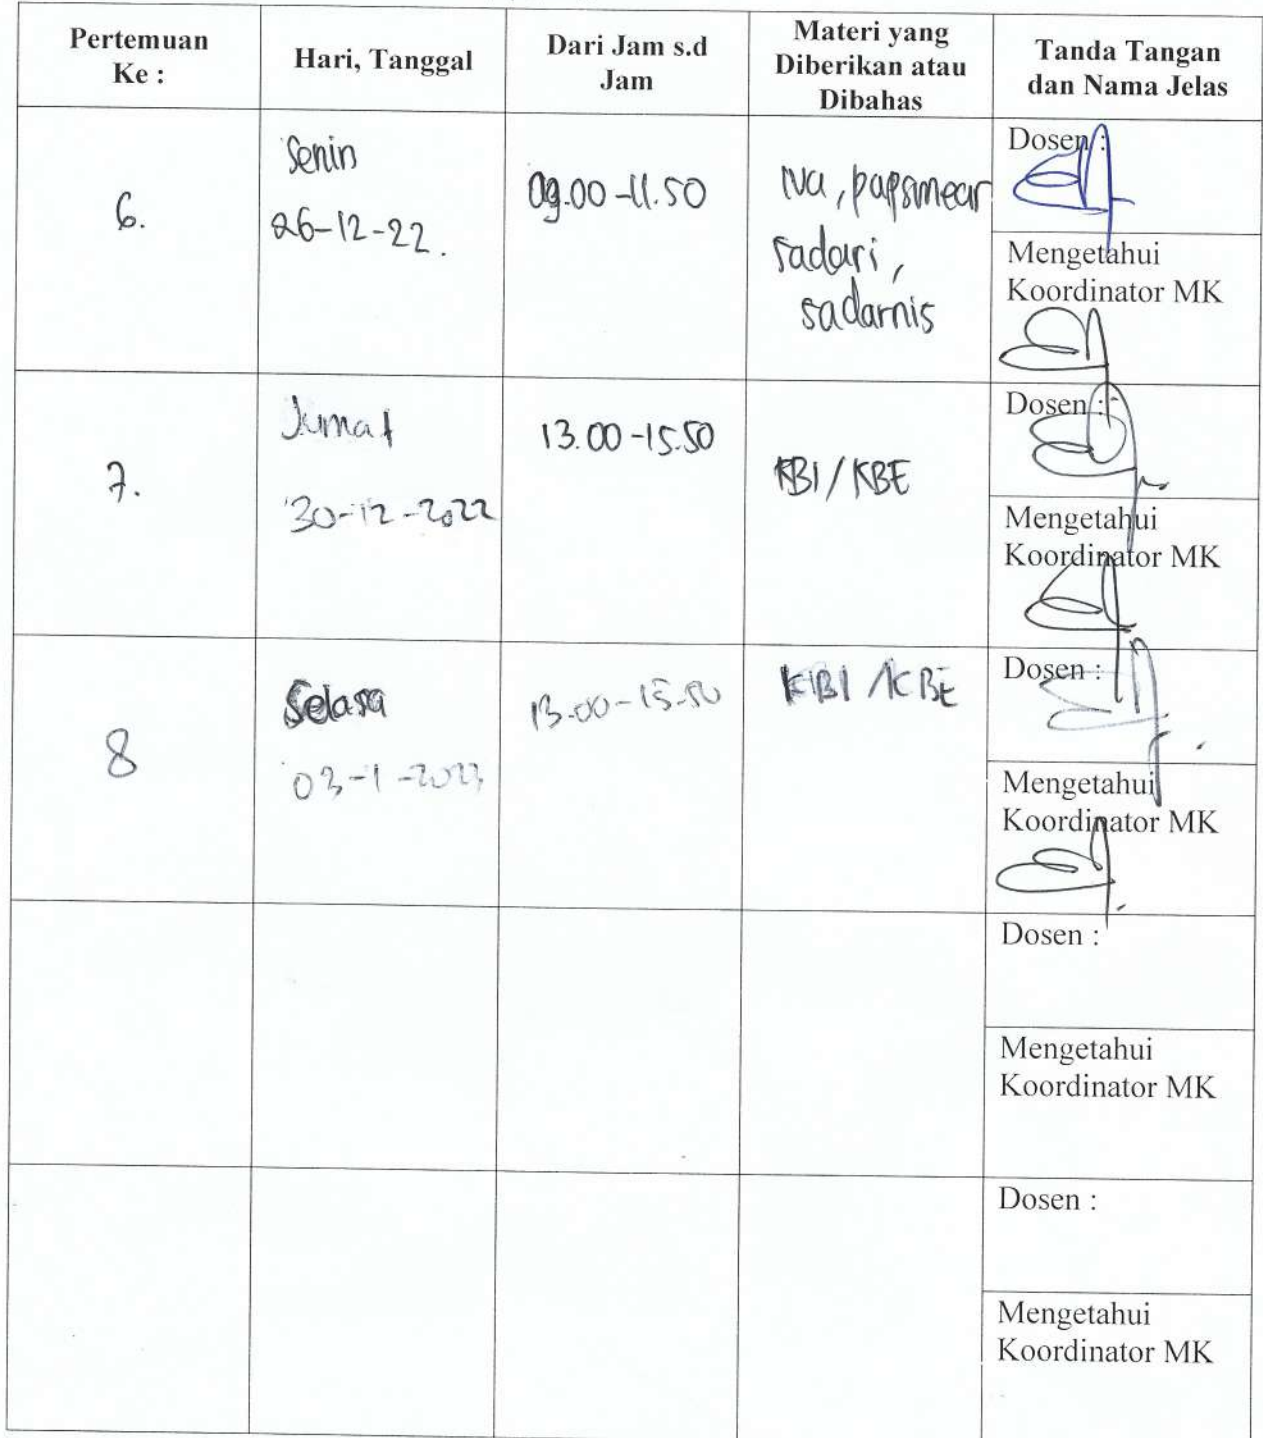 Pertemuan
Ke :
Hari, Tanggal
Dari Jam s.d
Jam
Materi yang
Diberikan atau
Dibahas
Tanda Tangan
dan Nama Jelas
6.
Senin
26-12-22.
09.00-11.50
Iva, papsmear
sadari,
sadarnis
Dosen :
Mengetahui
Koordinator MK
7.
Jumat
30-12-2022
13.00-15.50
KBI/KBE
Dosen :
Mengetahui
Koordinator MK
8
Selasa
03-1-2023
13.00-15.50
KBI/KBE
Dosen :
Mengetahui
Koordinator MK
Dosen :
Mengetahui
Koordinator MK
Dosen :
Mengetahui
Koordinator MK